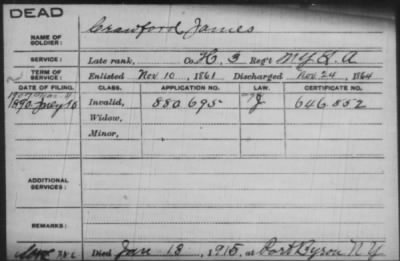 DEAD
NAME OF SOLDIER: Crawford James
SERVICE: Late rank, Co. H. 3 Reg't N.Y. L. A
TERM OF SERVICE: Enlisted Nov 10, 1861 Discharged Nov. 24, 1864
DATE OF FILING. CLASS. APPLICATION NO. LAW. CERTIFICATE NO.
1890 July 10 Invalid, 880.695 J 646.852
Widow,
Minor,
ADDITIONAL SERVICES:
REMARKS:
Died Jan 13, 1915, at Port Byron N Y